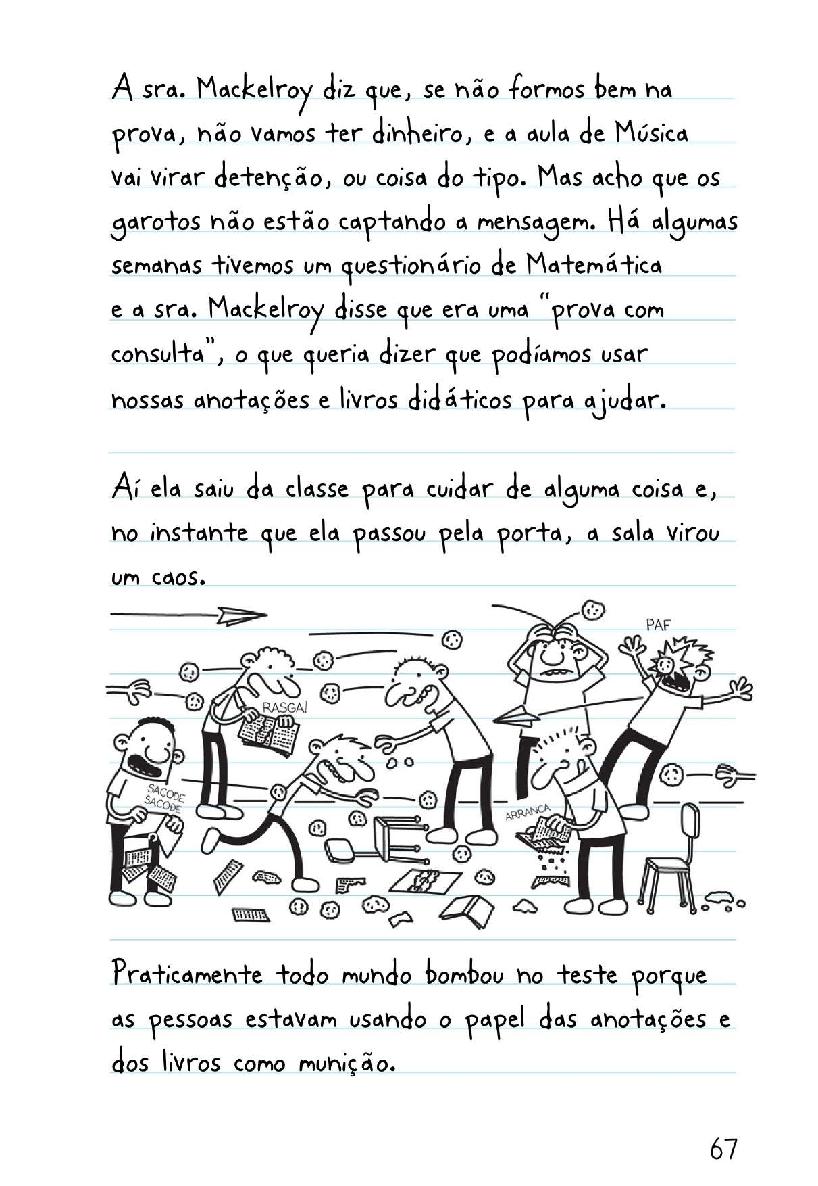 A sra. Mackelroy diz que, se não formos bem na
prova, não vamos ter dinheiro, e a aula de Música
vai virar detenção, ou coisa do tipo. Mas acho que os
garotos não estão captando a mensagem. Há algumas
semanas tivemos um questionário de Matemática
e a sra. Mackelroy disse que era uma "prova com
consulta", o que queria dizer que podíamos usar
nossas anotações e livros didáticos para ajudar.
Aí ela saiu da classe para cuidar de alguma coisa e,
no instante que ela passou pela porta, a sala virou
um caos.
PAF
RASGA!
SACODE
SACODE
ARRANCA
Praticamente todo mundo bombou no teste porque
as pessoas estavam usando o papel das anotações e
dos livros como munição.
67